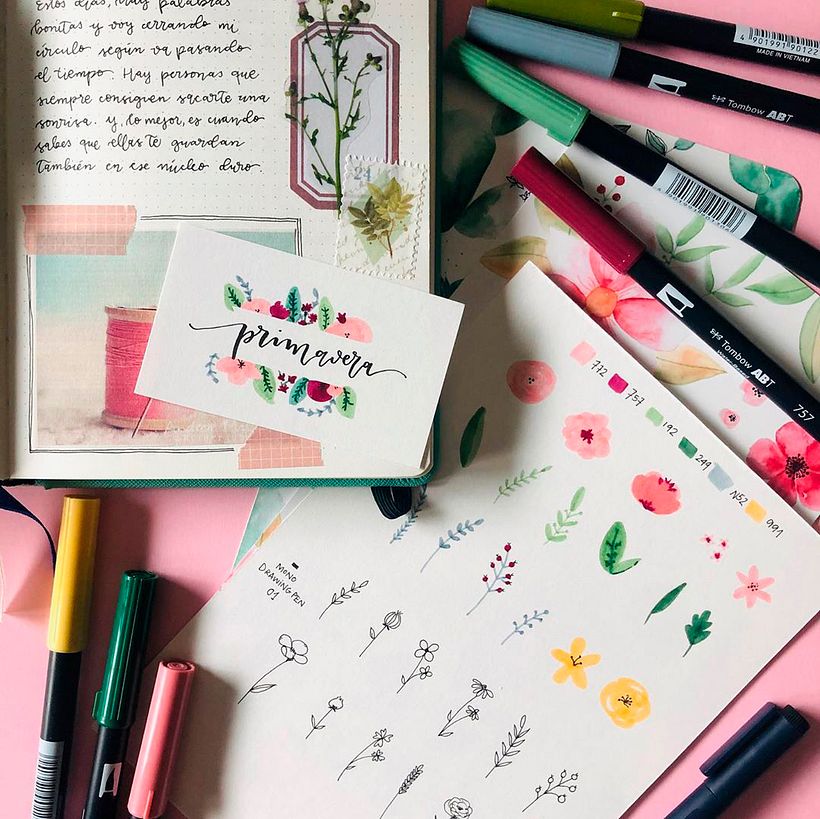 Estos días, hay palabras
bonitas y voy cerrando mi
círculo según va pasando
el tiempo. Hay personas que
siempre consiguen sacarte una
sonrisa. y, lo mejor, es cuando
sabes que ellas te guardan
también en ese núcleo duro.
24
primavera
4 901991 90122
MADE IN VIETNAM
Tombow ABT
Tombow ABT
757
772
757
192
249
N52
991
MONO
DRAWING PEN
01